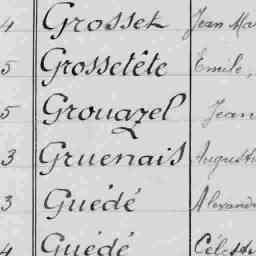 4 Grosset Jean Ma
5 Grossetête Emile,
5 Grouazel Jean
3 Gruenais Augusti
3 Guédé Alexandr
4 Guédé Célest